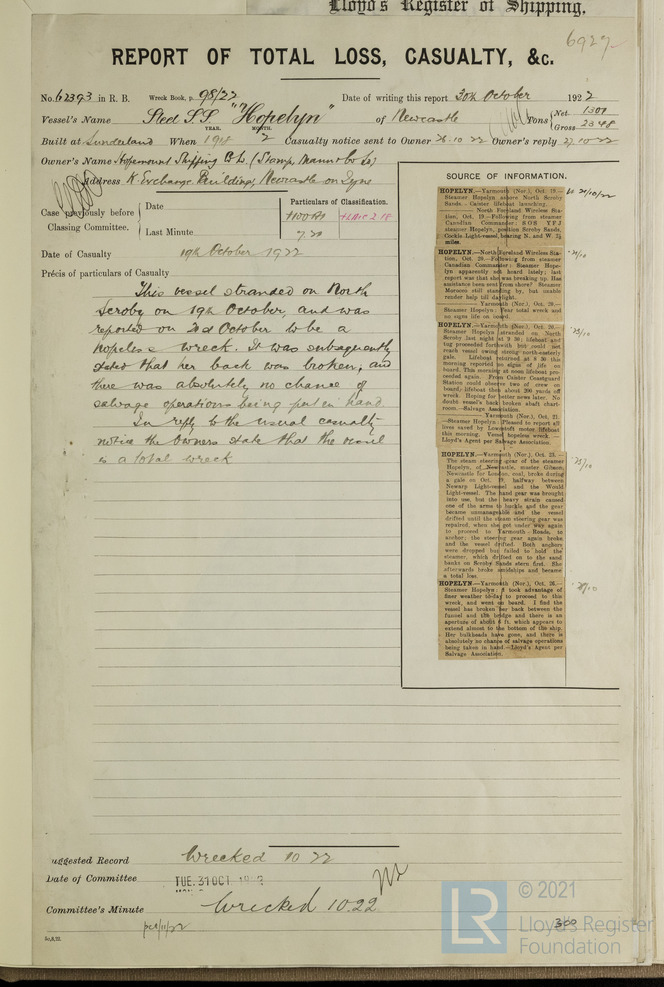 Lloyd's Register of Shipping.
6927
REPORT OF TOTAL LOSS, CASUALTY, &c.
No. 62393 in R. B. Wreck Book, p. 98/22 Date of writing this report 30th October 1922
Vessel's Name Steel S.S. "Hopelyn" of Newcastle Tons { Net 1307
Gross 2348
YEAR. MONTH.
Built at Sunderland When 1918 2 Casualty notice sent to Owner 26.10.22 Owner's reply 27.10.22
Owner's Name Hopemount Shipping Co Ld. (Stamp, Mann & Co Ld)
Address K. Exchange Buildings, Newcastle on Tyne
Case previously before
Classing Committee.
Date
Last Minute
Particulars of Classification.
+100A1
+LMC 2.18
7.20
Date of Casualty 19th October 1922
Précis of particulars of Casualty
This vessel stranded on North
Scroby on 19th October, and was
reported on 22d October to be a
hopeless wreck. It was subsequently
stated that her back was broken, and
there was absolutely no chance of
salvage operations being put in hand.
In reply to the usual casualty
notice the Owners state that the vessel
is a total wreck
SOURCE OF INFORMATION.
HOPELYN.—Yarmouth (Nor.), Oct. 19.—
Steamer Hopelyn ashore North Scroby
Sands. Caister lifeboat launching.
—— North Foreland Wireless Sta-
tion, Oct. 19.—Following from steamer
Canadian Commander: SOS YFJ
steamer Hopelyn, position Scroby Sands,
Cockle Light-vessel, bearing N. and W. 1½
miles.
HOPELYN.—North Foreland Wireless Sta-
tion, Oct. 20.—Following from steamer
Canadian Commander: Steamer Hope-
lyn apparently not heard lately; last
report was that she was breaking up. Has
assistance been sent from shore? Steamer
Morocco still standing by, but unable
render help till daylight.
—— Yarmouth (Nor.), Oct. 20.—
Steamer Hopelyn: Fear total wreck and
no signs life on board.
HOPELYN.—Yarmouth (Nor.), Oct. 20.—
Steamer Hopelyn stranded on North
Scroby last night at 9 30; lifeboat and
tug proceeded forthwith but could not
reach vessel owing strong north-easterly
gale. Lifeboat returned at 8 30 this
morning reported no signs of life on
board. This morning at noon lifeboat pro-
ceeded again. From Caister Coastguard
Station could observe two of crew on
board; lifeboat then about 200 yards off
wreck. Hoping for better news later. No
doubt vessel's back broken abaft chart-
room.—Salvage Association.
—— Yarmouth (Nor.), Oct. 21.
—Steamer Hopelyn: Pleased to report all
lives saved by Lowestoft motor lifeboat
this morning. Vessel hopeless wreck.—
Lloyd's Agent per Salvage Association.
HOPELYN.—Yarmouth (Nor.), Oct. 23.—
The steam steering gear of the steamer
Hopelyn, of Newcastle, master Gibson,
Newcastle for London, coal, broke during
a gale on Oct. 19, halfway between
Newarp Light-vessel and the Would
Light-vessel. The hand gear was brought
into use, but the heavy strain caused
one of the arms to buckle and the gear
became unmanageable and the vessel
drifted until the steam steering gear was
repaired, when she got under way again
to proceed to Yarmouth Roads, to
anchor; the steering gear again broke
and the vessel drifted. Both anchors
were dropped but failed to hold the
steamer, which drifted on to the sand
banks on Scroby Sands stern first. She
afterwards broke amidships and became
a total loss.
HOPELYN.—Yarmouth (Nor.), Oct. 26.—
Steamer Hopelyn: I took advantage of
finer weather to-day to proceed to this
wreck, and went on board. I find the
vessel has broken her back between the
funnel and the bridge and there is an
aperture of about 6 ft. which appears to
extend almost to the bottom of the ship.
Her bulkheads have gone, and there is
absolutely no chance of salvage operations
being taken in hand.—Lloyd's Agent per
Salvage Association.
uggested Record Wrecked 10 22
Date of Committee TUE. 31 OCT 1922
Committee's Minute Wrecked 10.22
300
© 2021
LR Lloyd's Register
Foundation